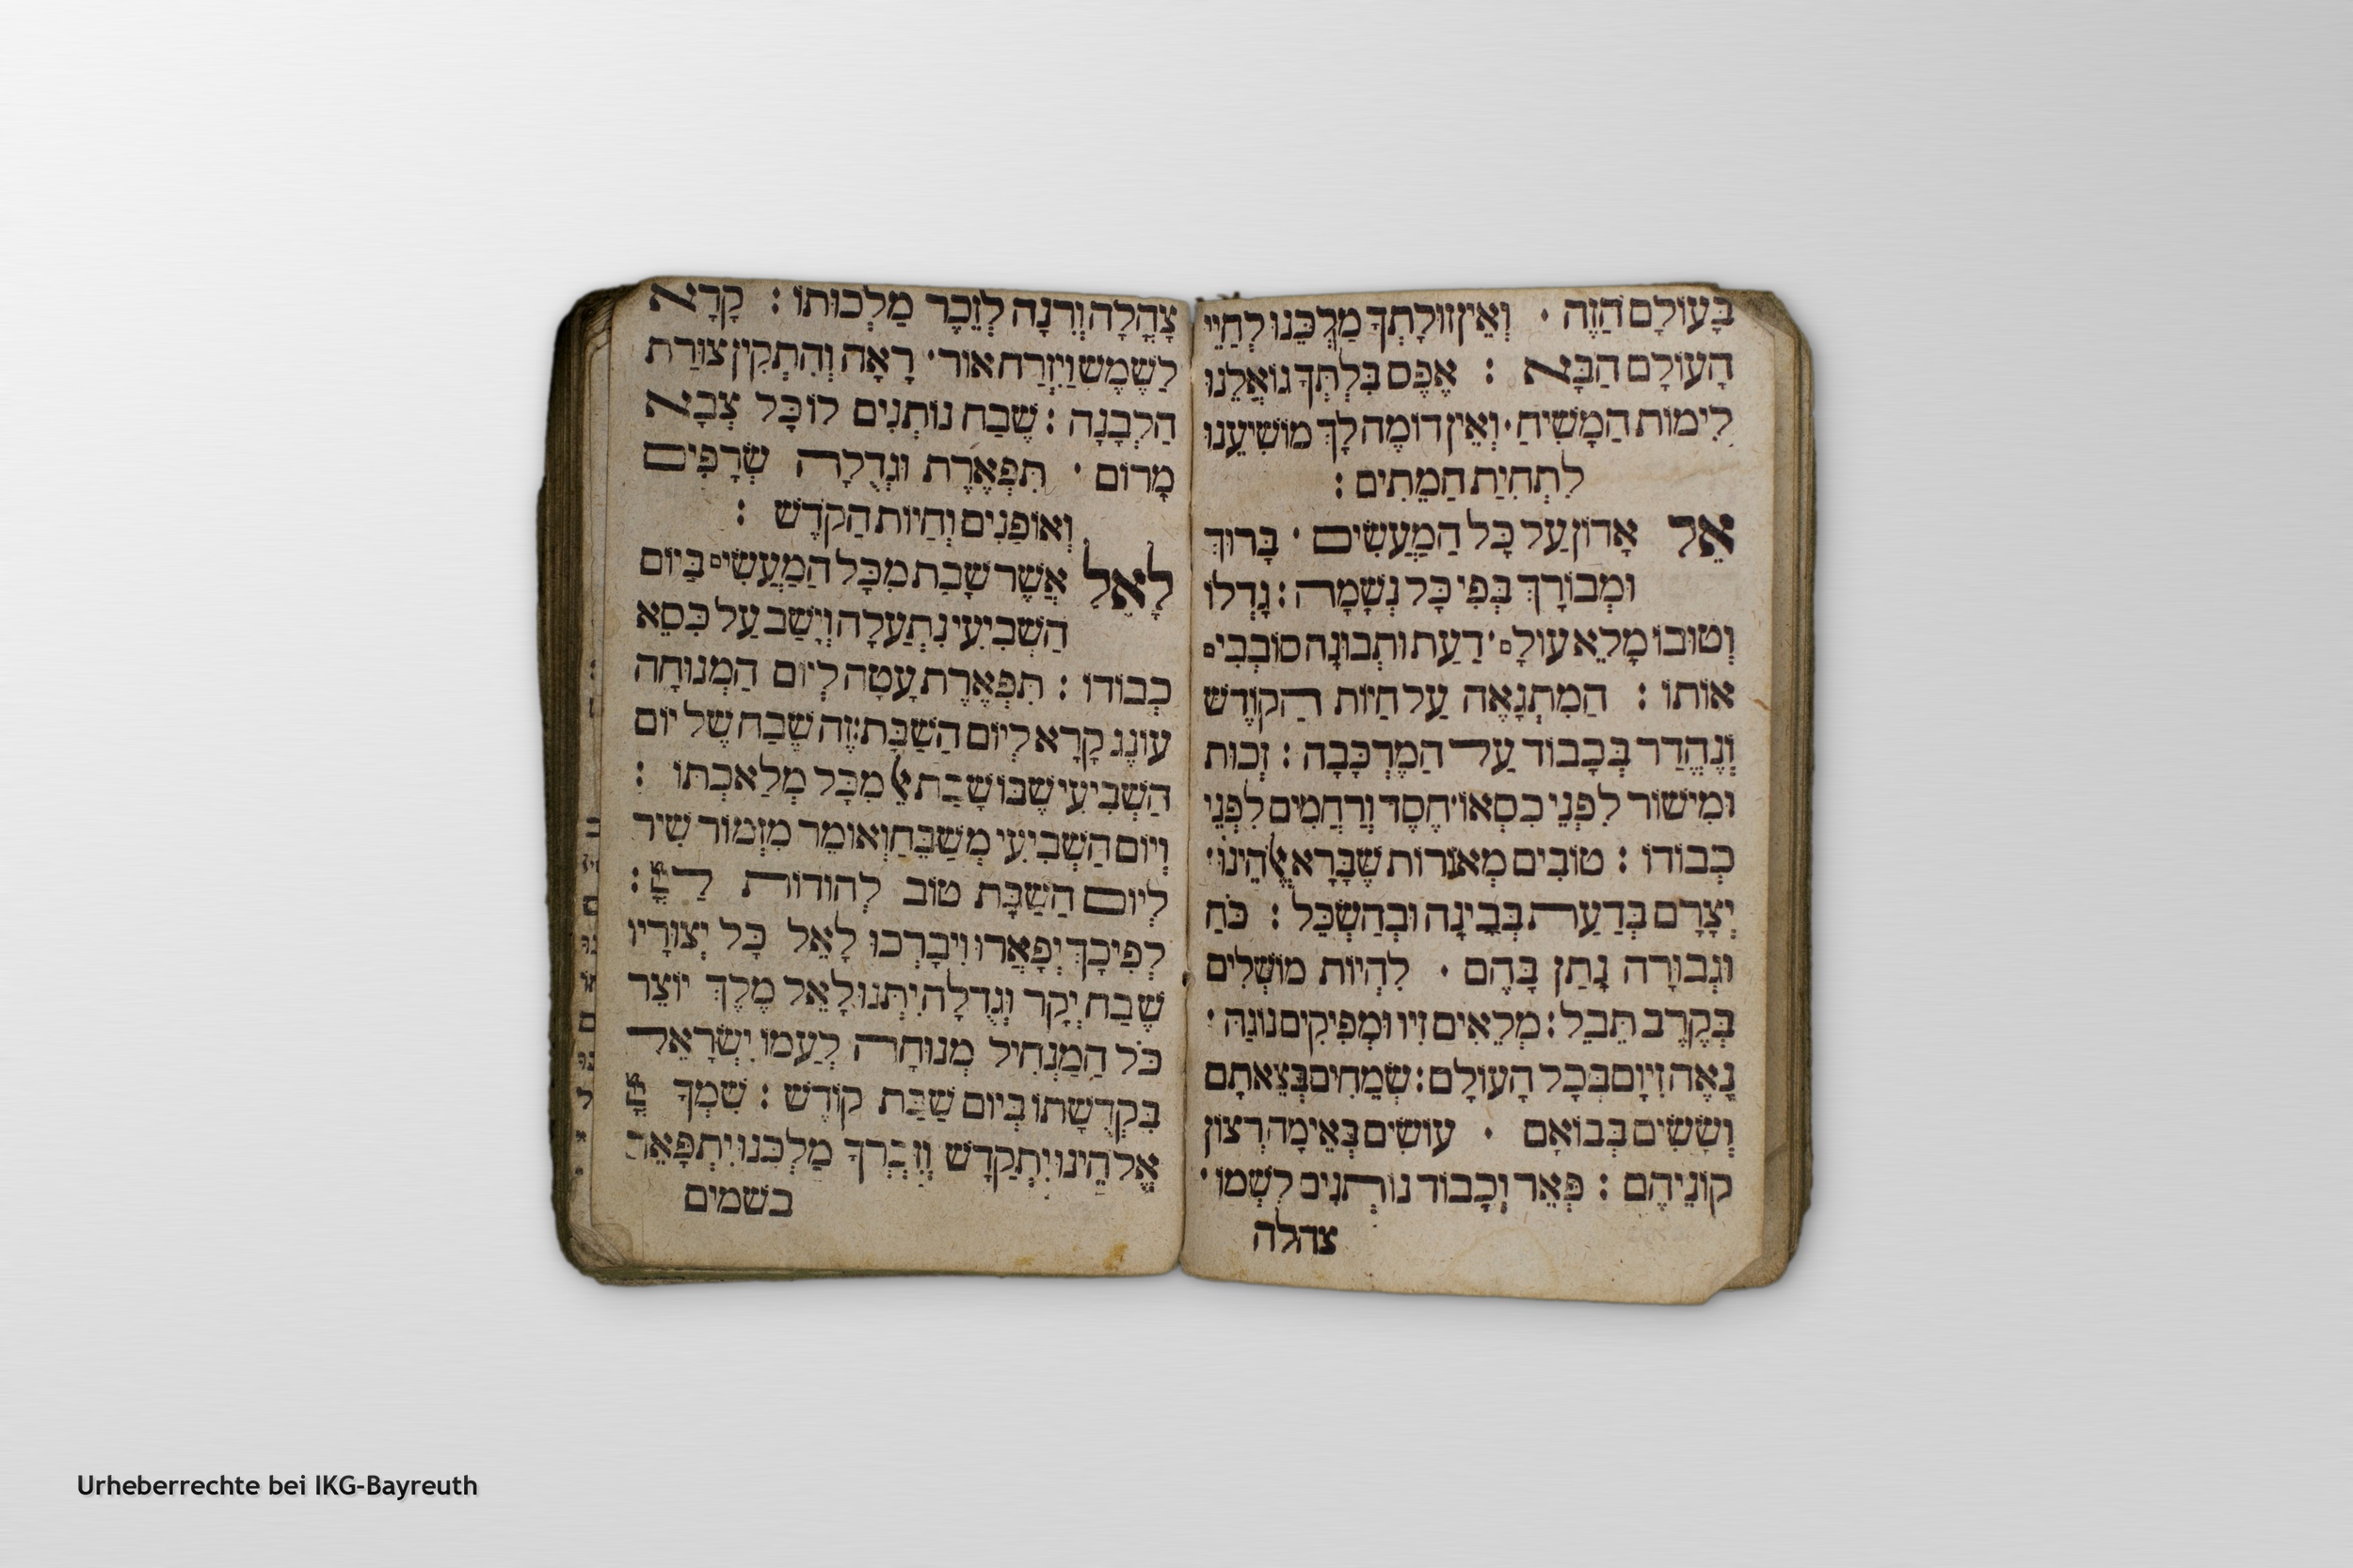 בָּעוֹלָם הַזֶה · וְאֵין זוּלָתְךָ מַלְכֵּנוּ לְחַיֵּי
הָעוֹלָם הַבָּא : אֶפֶס בִּלְתְּךָ גוֹאֲלֵנוּ
לִימוֹת הַמָשִׁיחַ · וְאֵין דוֹמֶה לָךְ מוֹשִׁיעֵנוּ
לִתְחִיַת הַמֵתִים :
אֵל אָדוֹן עַל כָּל הַמַעֲשִׂים · בָּרוּךְ
וּמְבוֹרָךְ בְּפִי כָּל נְשָׁמָה : גָדְלוֹ
וְטוּבוֹ מָלֵא עוֹלָם · דַעַת וּתְבוּנָה סוֹבְבִים
אוֹתוֹ : הַמִתְגָאֶה עַל חַיוֹת הַקוֹדֶשׁ
וְנֶהֱדַר בְּכָבוֹד עַל הַמֶרְכָּבָה : זְכוּת
וּמִישׁוֹר לִפְנֵי כִסְאוֹ · חֶסֶד וְרַחֲמִים לִפְנֵי
כְבוֹדוֹ : טוֹבִים מְאוֹרוֹת שֶׁבָּרָא אֱלֹהֵינוּ ·
יְצָרָם בְּדַעַת בְּבִינָה וּבְהַשְׂכֵּל : כֹּחַ
וּגְבוּרָה נָתַן בָּהֶם · לִהְיוֹת מוֹשְׁלִים
בְּקֶרֶב תֵּבֵל : מְלֵאִים זִיו וּמְפִיקִים נוֹגַהּ ·
נָאֶה זִיוָם בְּכָל הָעוֹלָם : שְׂמֵחִים בְּצֵאתָם
וְשָׂשִׂים בְּבוֹאָם · עוֹשִׂים בְּאֵימָה רְצוֹן
קוֹנֵיהֶם : פְּאֵר וְכָבוֹד נוֹתְנִים לִשְׁמוֹ ·
צהלה
צָהֳלָה וְרִנָה לְזֵכֶר מַלְכוּתוֹ : קָרָא
לַשֶׁמֶשׁ וַיִזְרַח אוֹר · רָאָה וְהִתְקִין צוּרַת
הַלְבָנָה : שֶׁבַח נוֹתְנִים לוֹ כָּל צְבָא
מָרוֹם · תִּפְאֶרֶת וּגְדֻלָה שְׂרָפִים
וְאוֹפַנִים וְחַיוֹת הַקֹדֶשׁ :
לָאֵל אֲשֶׁר שָׁבַת מִכָּל הַמַעֲשִׂים בַּיוֹם
הַשְׁבִיעִי נִתְעַלָה וְיָשַׁב עַל כִּסֵא
כְבוֹדוֹ : תִּפְאֶרֶת עָטָה לְיוֹם הַמְנוּחָה
עוֹנֶג קָרָא לְיוֹם הַשַׁבָּת : זֶה שֶׁבַח שֶׁל יוֹם
הַשְׁבִיעִי שֶׁבּוֹ שָׁבַת אֵל מִכָּל מְלַאכְתּוֹ :
וְיוֹם הַשְׁבִיעִי מְשַׁבֵּחַ וְאוֹמֵר מִזְמוֹר שִׁיר
לְיוֹם הַשַׁבָּת טוֹב לְהוֹדוֹת לַיְיָ :
לְפִיכָךְ יְפָאֲרוּ וִיבָרְכוּ לָאֵל כָּל יְצוּרָיו
שֶׁבַח יְקָר וּגְדֻלָה יִתְּנוּ לָאֵל מֶלֶךְ יוֹצֵר
כֹּל הַמַנְחִיל מְנוּחָה לְעַמוֹ יִשְׂרָאֵל
בִּקְדֻשָׁתוֹ בְּיוֹם שַׁבַּת קוֹדֶשׁ : שִׁמְךָ יְיָ
אֱלֹהֵינוּ יִתְקַדָשׁ וְזִכְרְךָ מַלְכֵּנוּ יִתְפָּאֵר
בשמים
Urheberrechte bei IKG-Bayreuth